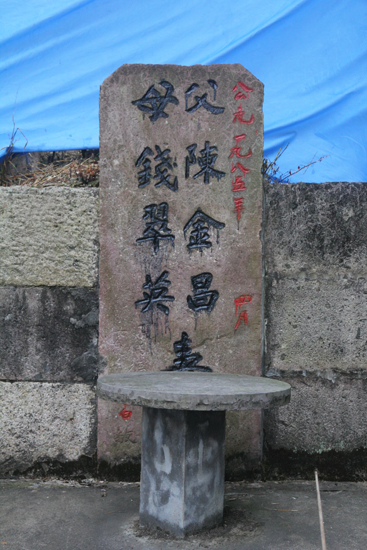 公元一九八五年 四月
父陳金昌
母錢翠英